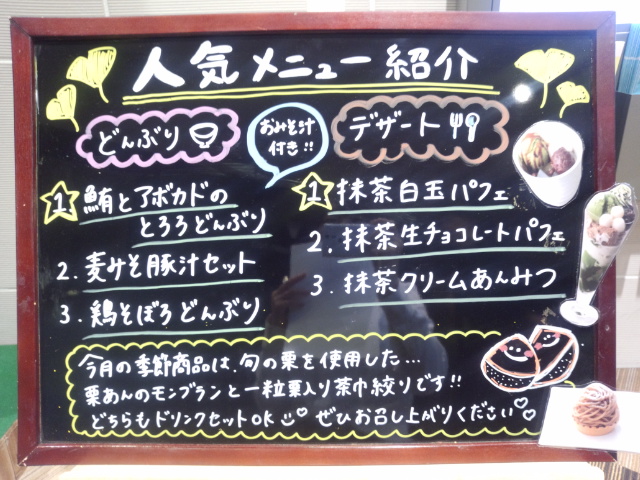 人気メニュー紹介
どんぶり
おみそ汁
付き!!
デザート
1 鮪とアボカドの
とろろどんぶり
2. 麦みそ豚汁セット
3. 鶏そぼろどんぶり
1 抹茶白玉パフェ
2. 抹茶生チョコレートパフェ
3. 抹茶クリームあんみつ
今月の季節商品は、旬の栗を使用した...
栗あんのモンブランと一粒栗入り茶巾絞りです!!
どちらもドリンクセットOK ぜひお召し上がりください♡